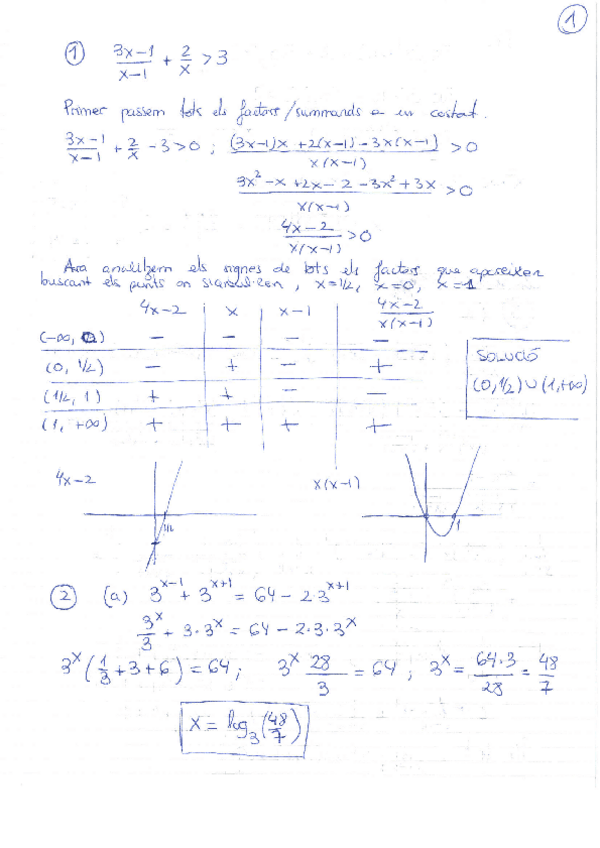 1
① (3x-1)/(x-1) + 2/x > 3
Primer passem tots els factors/summands a un costat.
(3x-1)/(x-1) + 2/x - 3 > 0 ; ((3x-1)x + 2(x-1) - 3x(x-1))/(x(x-1)) > 0
(3x² - x + 2x - 2 - 3x² + 3x)/(x(x-1)) > 0
(4x-2)/(x(x-1)) > 0
Ara analitzem els signes de tots els factors que apareixen
buscant els punts on s'anul·len, x=1/2, x=0, x=1
4x-2 x x-1 (4x-2)/(x(x-1))
(-∞, 0) - - - -
(0, 1/2) - + - +
(1/2, 1) + + - -
(1, +∞) + + + +
SOLUCIÓ
(0, 1/2) ∪ (1, +∞)
4x-2
1/2
x(x-1)
1
② (a) 3^(x-1) + 3^(x+1) = 64 - 2·3^(x+1)
3^x/3 + 3·3^x = 64 - 2·3·3^x
3^x (1/3 + 3 + 6) = 64 ; 3^x 28/3 = 64 ; 3^x = (64·3)/28 = 48/7
x = log₃(48/7)